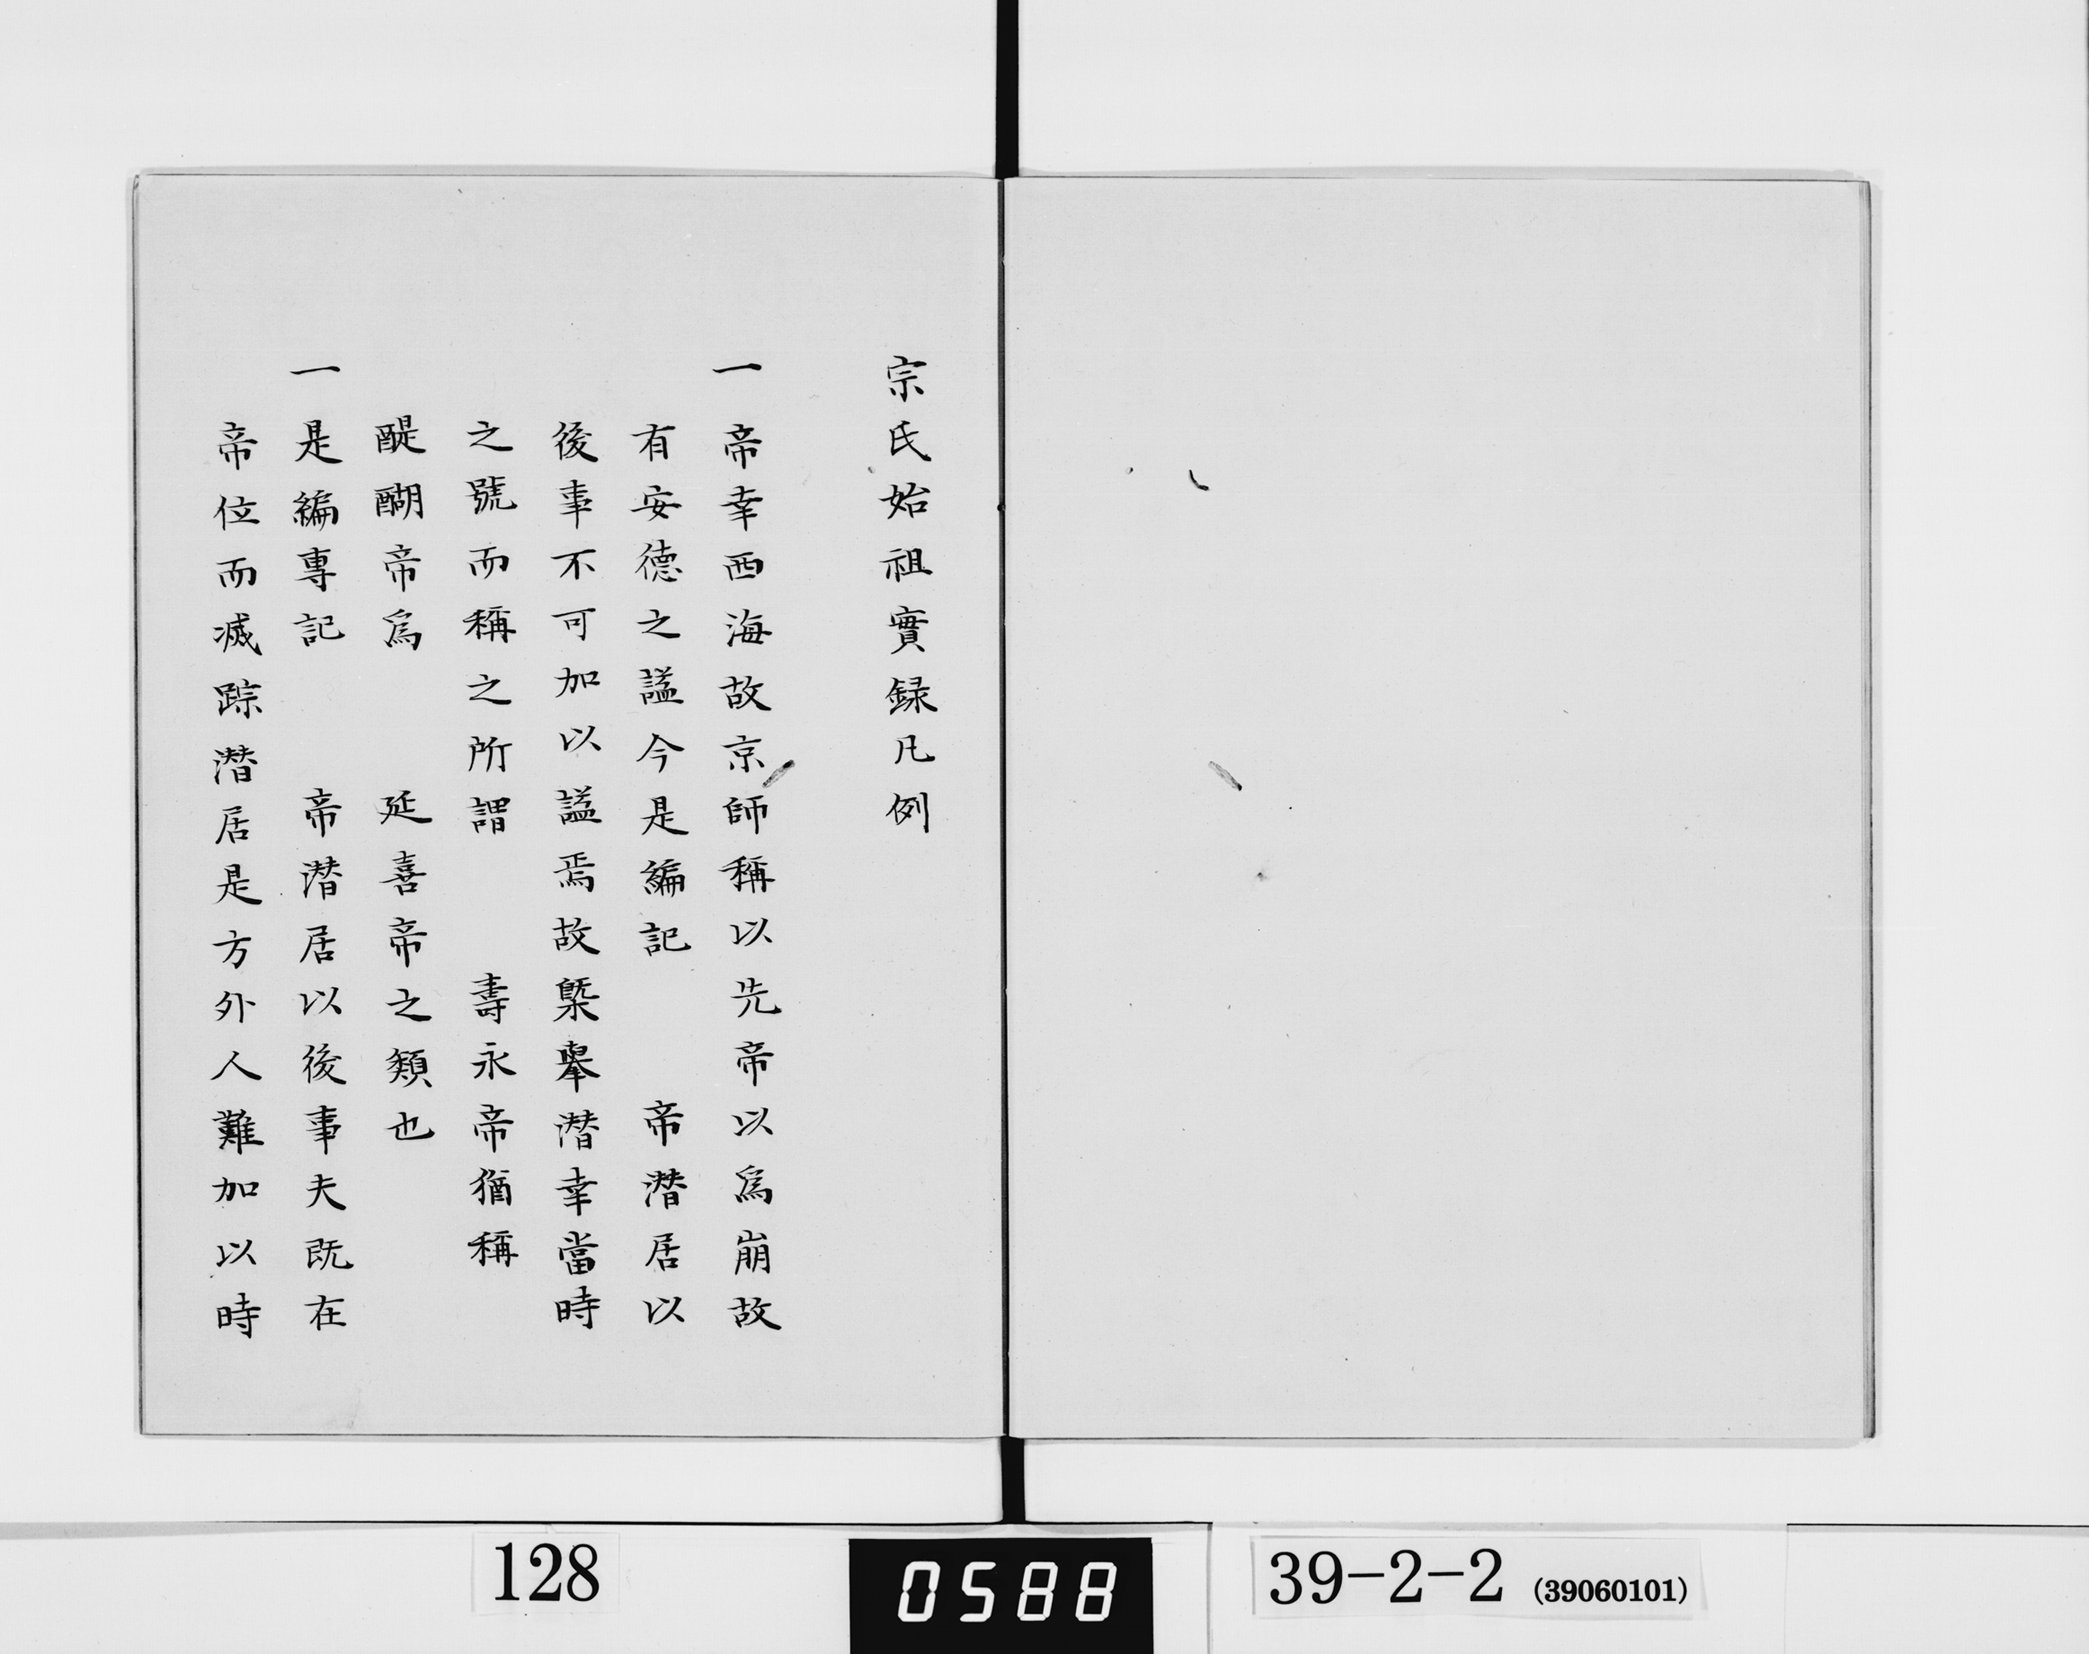 宗氏始祖實録凡例
一帝幸西海故京師稱以先帝以爲崩故
有安德之謚今是編記　　帝潜居以
後事不可加以謚焉故槩舉潜幸當時
之號而稱之所謂　　壽永帝猶稱
醍醐帝爲　　延喜帝之類也
一是編專記　　帝潜居以後事夫既在
帝位而滅踪潜居是方外人難加以時
128
0588
39-2-2 (39060101)